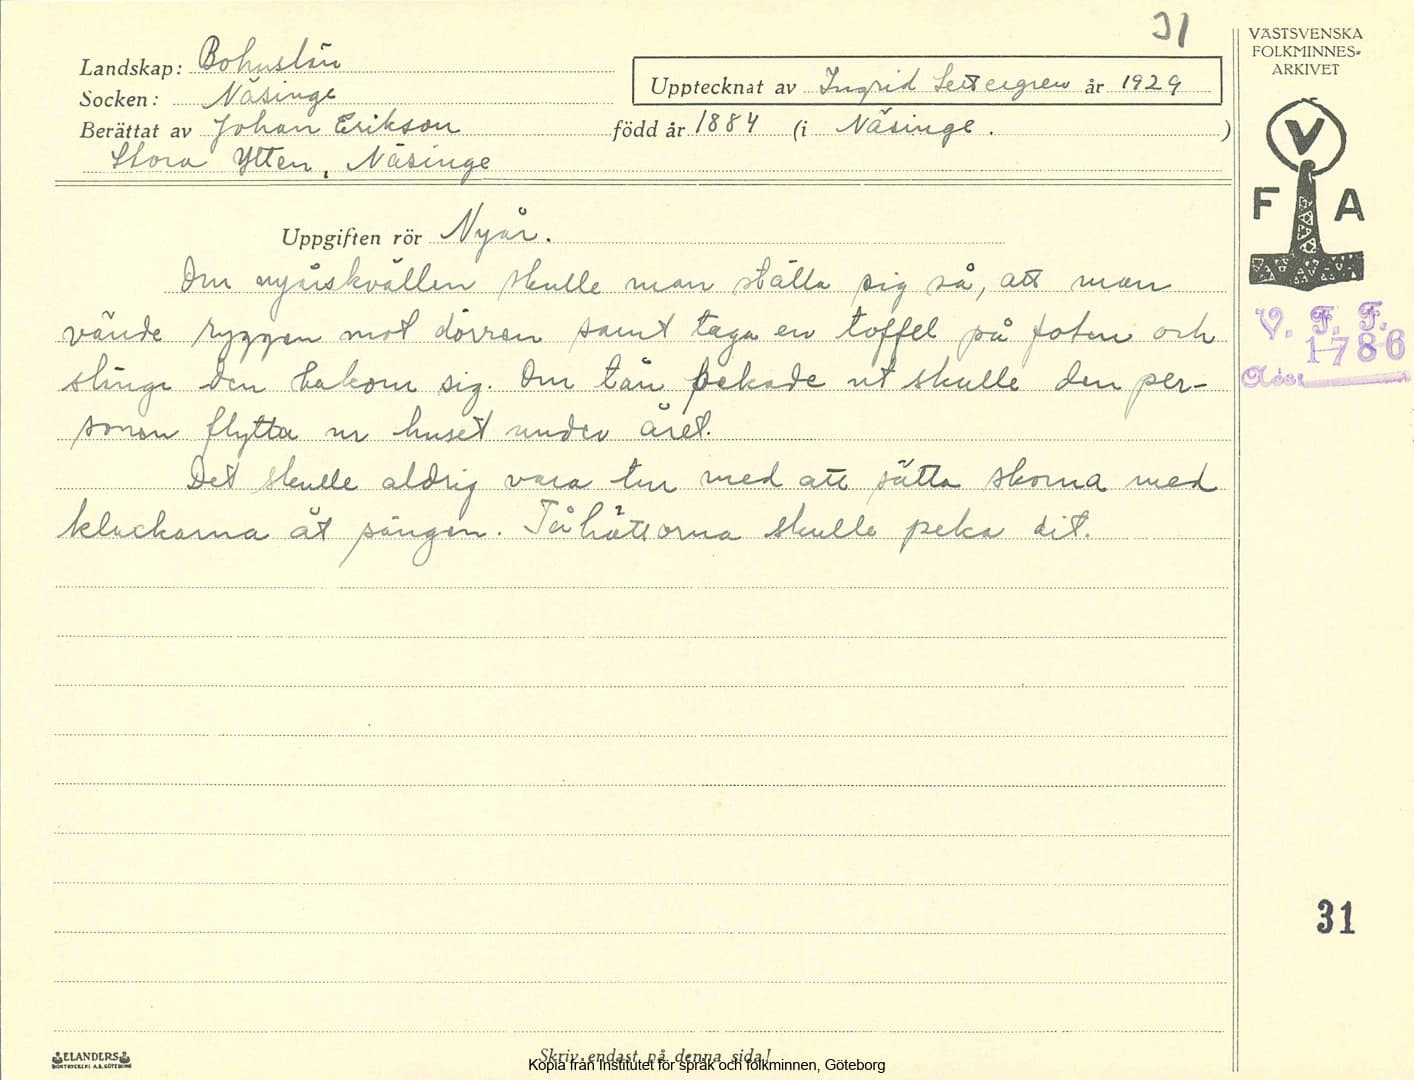 31
VÄSTSVENSKA
FOLKMINNES-
ARKIVET
Landskap: Bohuslän
Upptecknat av Ingrid Settergren år 1929
Socken: Näsinge
Berättat av Johan Erikson född år 1884 (i Näsinge. )
Stora Ytten, Näsinge
V
F A
Uppgiften rör Nyår.
Om nyårskvällen skulle man ställa sig så, att man
vände ryggen mot dörren samt taga en toffel på foten och
slänga den bakom sig. Om tån pekade ut skulle den per-
sonen flytta ur huset under året.
Det skulle aldrig vara tur med att sätta skorna med
klackarna åt sängen. Tåhättorna skulle peka dit.
V. F. F.
1786
31
ELANDERS
BOKTRYCKERI A.B. GÖTEBORG
Skriv endast på denna sida!
Kopia från Institutet för språk och folkminnen, Göteborg